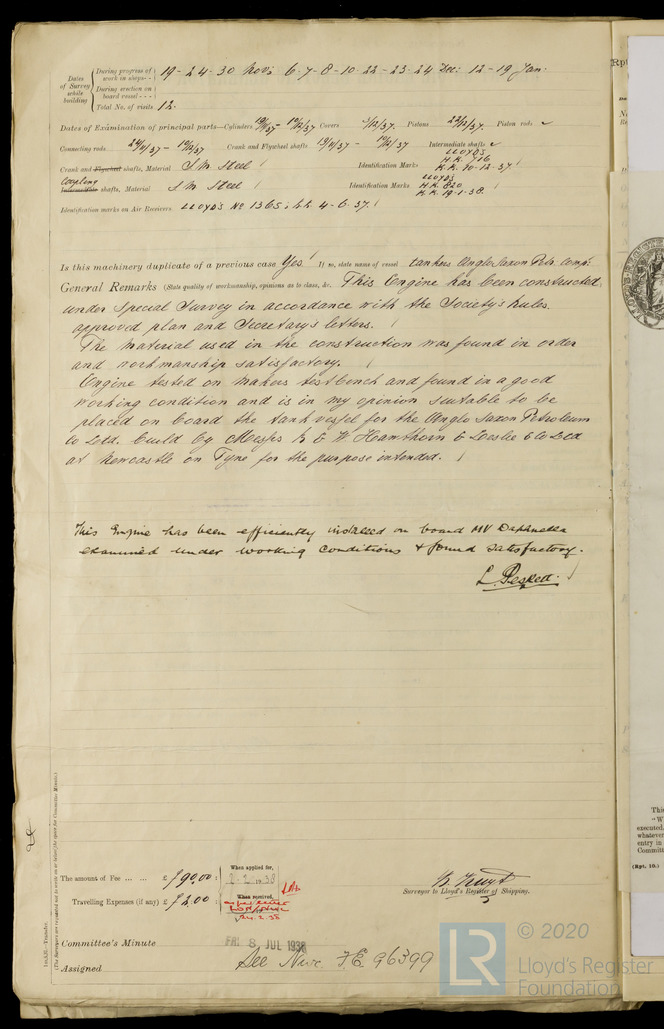 Dates of Survey while building
During progress of work in shops - - 19 - 24 - 30 Nov: 6 - 7 - 8 - 10 - 22 - 23 - 24 Dec: 12 - 19 Jan.
During erection on board vessel - - -
Total No. of visits 12.
Dates of Examination of principal parts—Cylinders Covers Pistons 22/12/37. Piston rods
Connecting rods Crank and Flywheel shafts Intermediate shafts
LLOYD'S
H.K. 716
K.K. 10-12-37
Crank and Flywheel shafts, Material S.M. Steel Identification Marks
LLOYD'S
H.K. 820
K.K. 19-1-38.
Coupling Intermediate shafts, Material S.M. Steel Identification Marks
Identification marks on Air Receivers LLOYD'S No 1365 : 4-6-37.
Is this machinery duplicate of a previous case Yes. If so, state name of vessel tankers Anglo Saxon Petr. Comp.
General Remarks (State quality of workmanship, opinions as to class, &c. This Engine has been constructed
under Special Survey in accordance with the Society's Rules.
approved plan and Secretary's letters.
The material used in the construction was found in order
and workmanship satisfactory.
Engine tested on makers testbench and found in a good
working condition and is in my opinion suitable to be
placed on board the tankvessel for the Anglo Saxon Petroleum
Co Ltd. build by Messrs R & W Hawthorn & Leslie & Co Ltd
at Newcastle on Tyne for the purpose intended.
This Engine has been efficiently installed on board MV Daphnella
examined under working conditions & found satisfactory.
L. Pesked.
The amount of Fee ... ... £ 90.00 :
When applied for,
2.2.1938
Travelling Expenses (if any) £ 2.00 :
When received,
24.2.38
Surveyor to Lloyd's Register of Shipping.
Committee's Minute FRI 8 JUL 1938
Assigned See Nwc. F.E. 96399
(The Surveyors are requested not to write on or below the space for Committee Minute.)
© 2020
LR
Lloyd's Register
Foundation
Rpt
This
"W
executed
whatever
entry in
Committ
(Rpt. 10.)